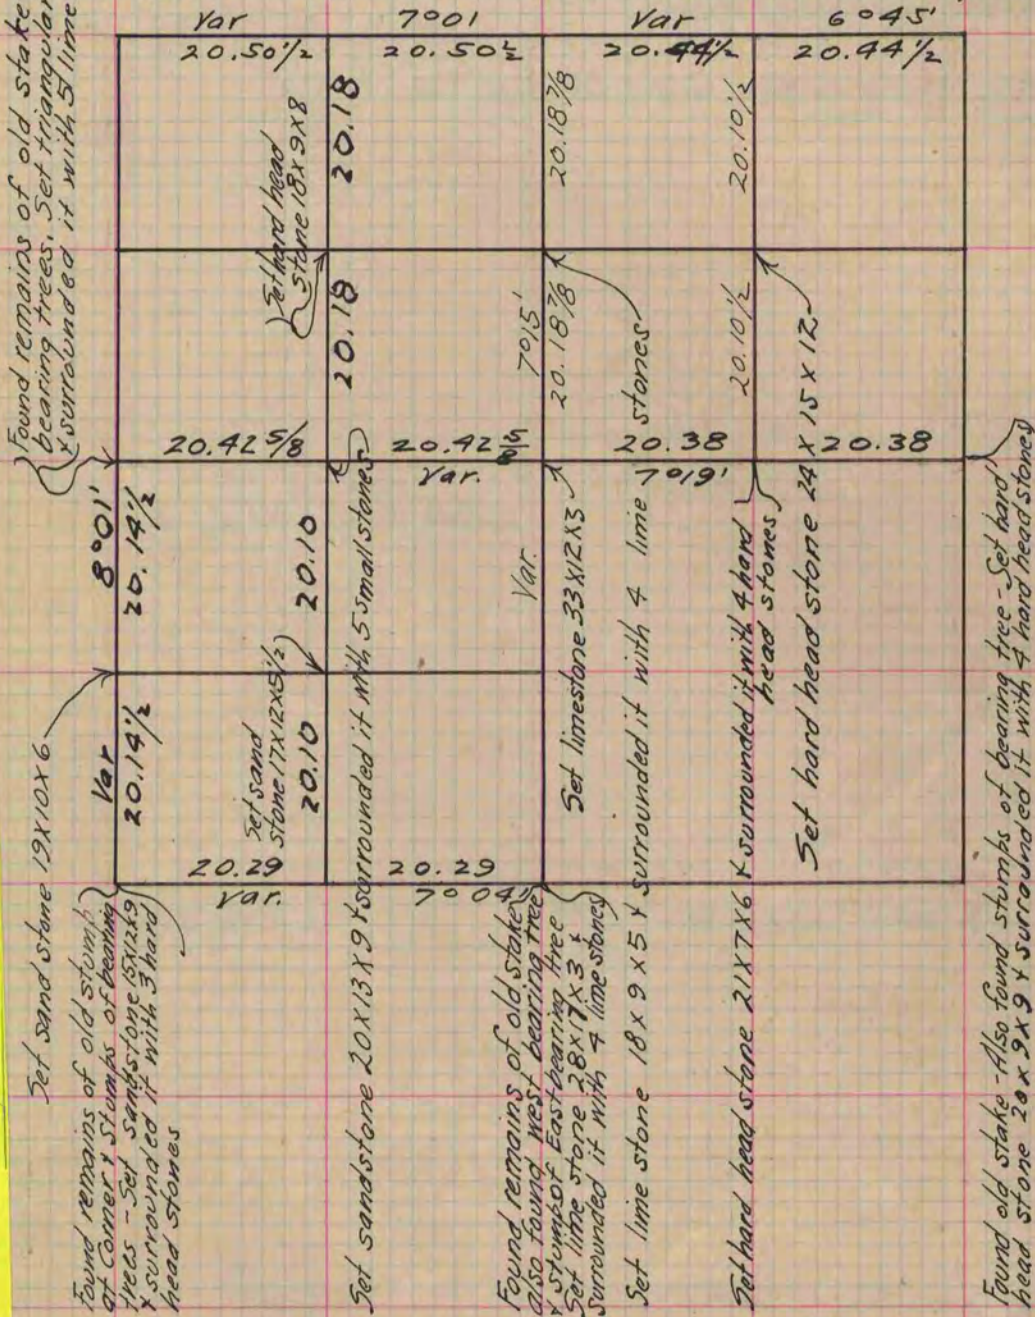 Var 7°01 Var 6°45'
20.50 1/2 20.50 1/2 20.44 1/2 20.44 1/2
Found remains of old stake
bearing trees. Set triangular
& surrounded it with 5 lime
Set hard head
stone 18x9x8
20.18
20.18 7/8
20.10 1/2
20.18
7°15'
20.18 7/8
stones
20.10 1/2
20.42 5/8 20.42 5/8 20.38 20.38
Var. 7°19'
8°01'
20.14 1/2
20.10
Var.
Var
20.14 1/2
Set sand
stone 17x12x5 1/2
20.10
20.29 20.29
Var. 7°04'
Set sand stone 19x10x6
Found remains of old stump
at Corner & Stumps of bearing
trees - Set sandstone 15x12x9
& surrounded it with 3 hard
head stones
Set sandstone 20x13x9 & surrounded it with 5 small stones
Found remains of old stake
also found west bearing tree
& stump of East bearing tree
Set lime stone 28x17x3 &
surrounded it with 4 lime stones
Set limestone 33x12x3
Set lime stone 18x9x5 & surrounded it with 4 lime
Set hard head stone 21x7x6 & surrounded it with 4 hard
head stones
Set hard head stone 24x15x12
Found old stake - Also found stumps of bearing tree - Set hard
head stone 20x9x9 & surrounded it with 4 hard head stones